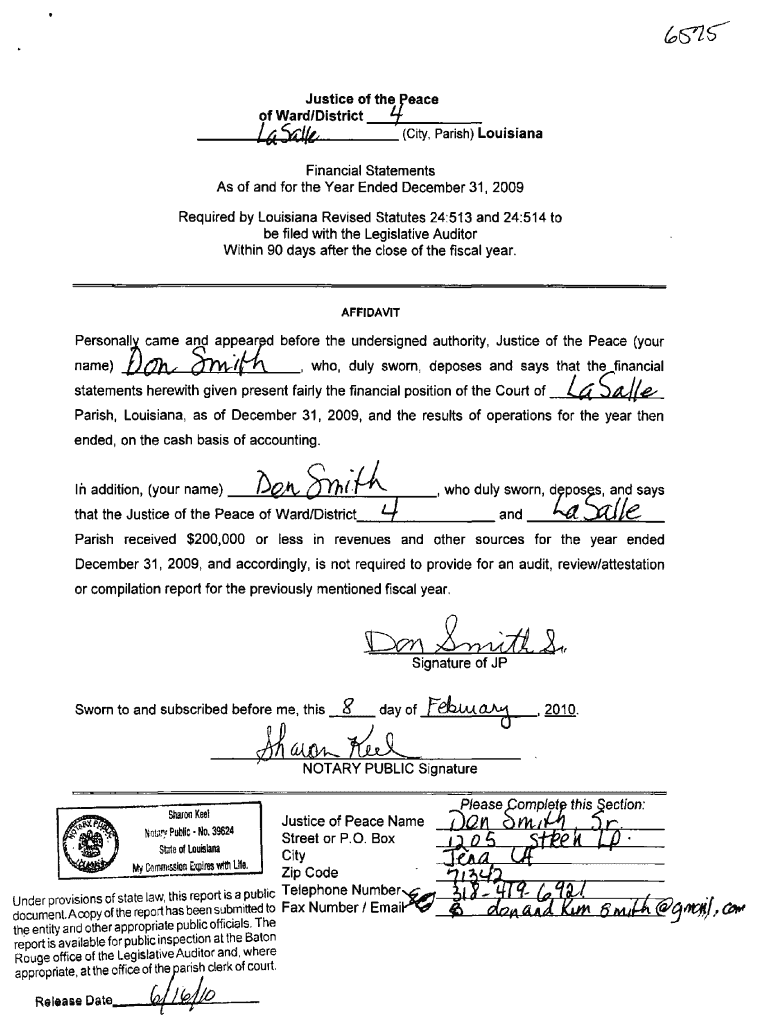 6575
Justice of the Peace
of Ward/District 4
LaSalle (City, Parish) Louisiana
Financial Statements
As of and for the Year Ended December 31, 2009
Required by Louisiana Revised Statutes 24:513 and 24:514 to
be filed with the Legislative Auditor
Within 90 days after the close of the fiscal year.
AFFIDAVIT
Personally came and appeared before the undersigned authority, Justice of the Peace (your
name) Don Smith, who, duly sworn, deposes and says that the financial
statements herewith given present fairly the financial position of the Court of LaSalle
Parish, Louisiana, as of December 31, 2009, and the results of operations for the year then
ended, on the cash basis of accounting.
In addition, (your name) Don Smith, who duly sworn, deposes, and says
that the Justice of the Peace of Ward/District 4 and LaSalle
Parish received $200,000 or less in revenues and other sources for the year ended
December 31, 2009, and accordingly, is not required to provide for an audit, review/attestation
or compilation report for the previously mentioned fiscal year.
Don Smith Sr.
Signature of JP
Sworn to and subscribed before me, this 8 day of February, 2010.
Sharon Keel
NOTARY PUBLIC Signature
Sharon Keel
Notary Public - No. 39624
State of Louisiana
My Commission Expires with Life.
NOTARY PUBLIC
LOUISIANA
Please Complete this Section:
Justice of Peace Name Don Smith Sr
Street or P.O. Box 1205 Steen LP.
City Jena LA
Zip Code 71342
Telephone Number 318-419-6921
Fax Number / Email donand Kim Smith@gmail.com
Under provisions of state law, this report is a public
document. A copy of the report has been submitted to
the entity and other appropriate public officials. The
report is available for public inspection at the Baton
Rouge office of the Legislative Auditor and, where
appropriate, at the office of the parish clerk of court.
Release Date 6/16/10